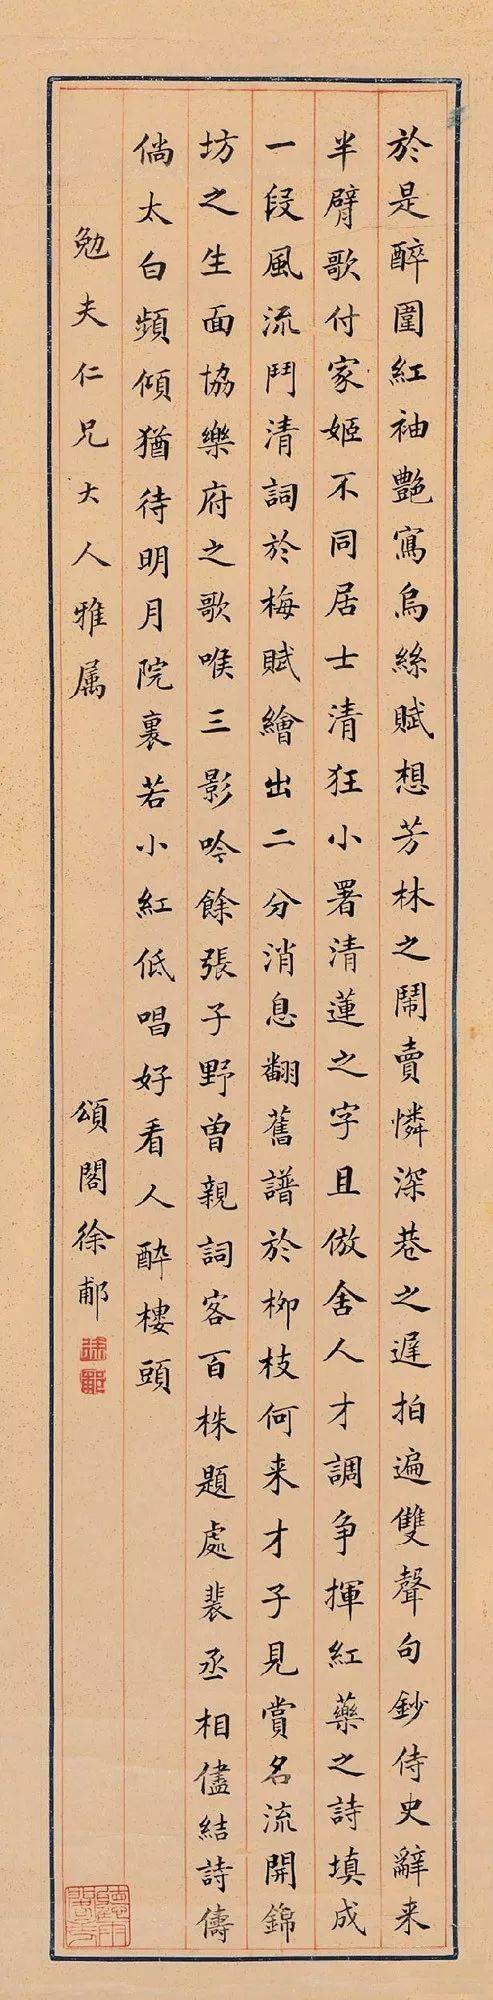 於是醉圍紅袖艷寫烏絲賦想芳林之鬧賣憐深巷之遲拍遍雙聲句鈔侍史辭来
半臂歌付家姬不同居士清狂小署清蓮之字且倣舍人才調争揮紅藥之詩填成
一段風流鬥清詞於梅賦繪出二分消息翻舊譜於柳枝何来才子見賞名流開錦
坊之生面協樂府之歌喉三影吟餘張子野曾親詞客百株題處裴丞相儘結詩儔
倘太白頻傾猶待明月院裏若小紅低唱好看人醉樓頭
勉夫仁兄大人雅属
頌閣徐郙
徐郙